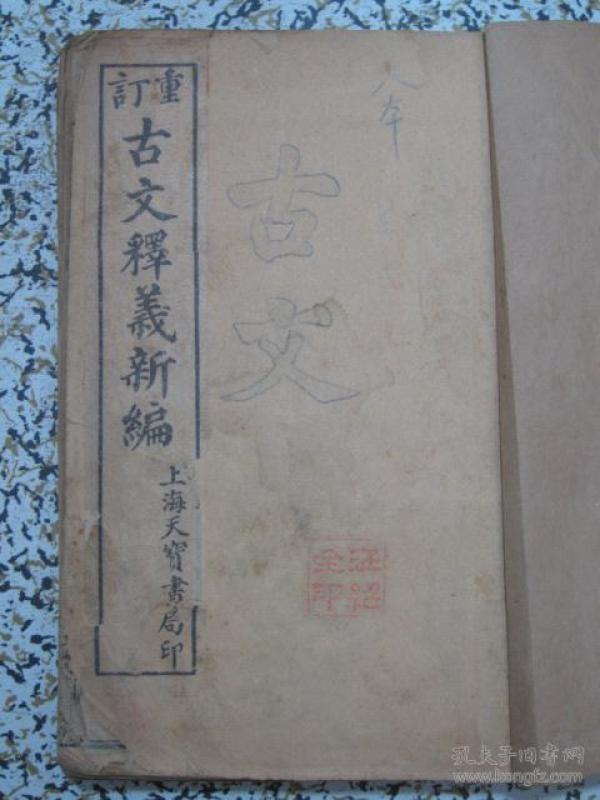 重訂
古文釋義新編
上海天寶書局印
八本
古文
汪紹
全印
孔夫子旧书网
www.kongfz.com